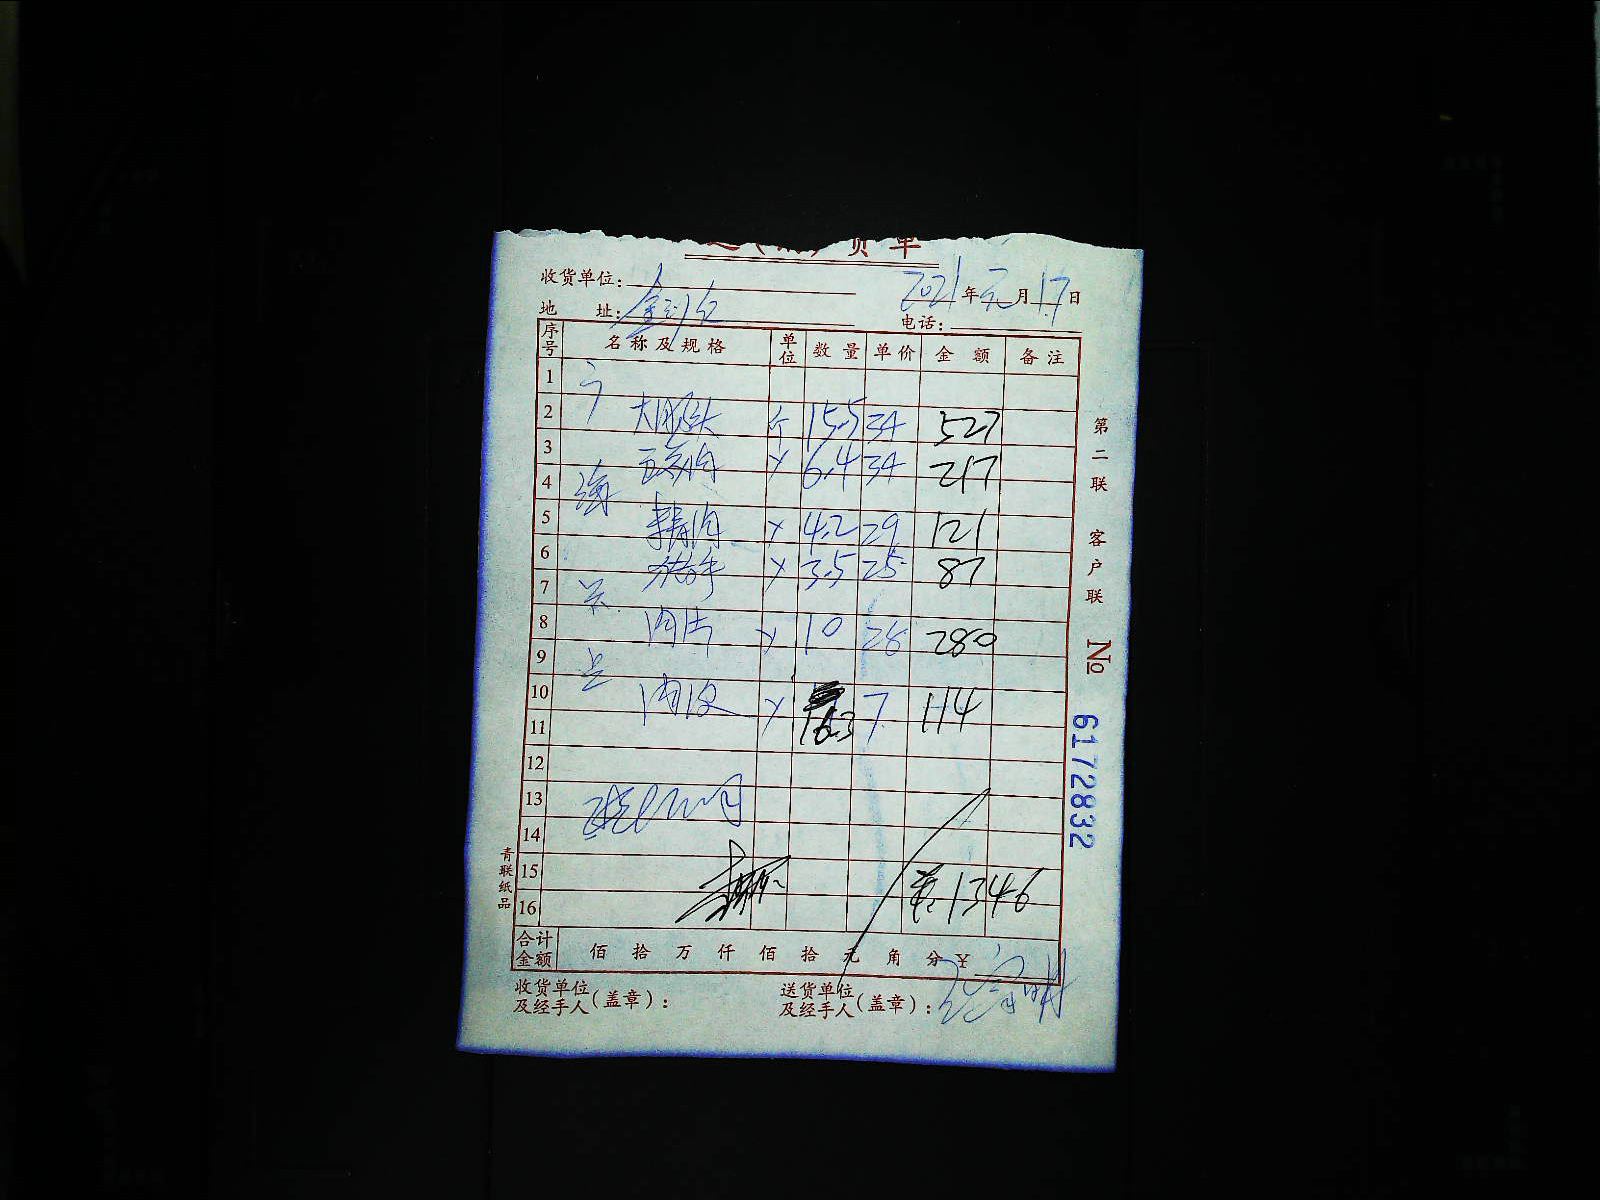 货单
收货单位：
2021年元月17日
地 址：
电话：
序号 名称及规格 单位 数量 单价 金额 备注
1
2 大肥头 个 15.5 34 527
3 五花肉 6.4 34 217
4
5 精肉 4.2 29 121
6 猪手 3.5 25 87
7
8 肉片 10 28 280
9
10 肉皮 16.3 7 114
11
12
13
14
15 1346
16
合计金额 佰 拾 万 仟 佰 拾 元 角 分 ¥
收货单位及经手人（盖章）：
送货单位及经手人（盖章）：
第二联 客户联
No 6172832
青联纸品